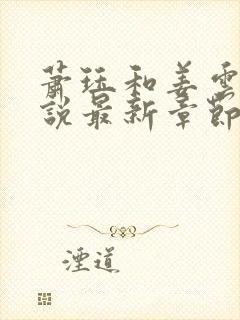 萧珏和姜雲
說最新章節
湮道